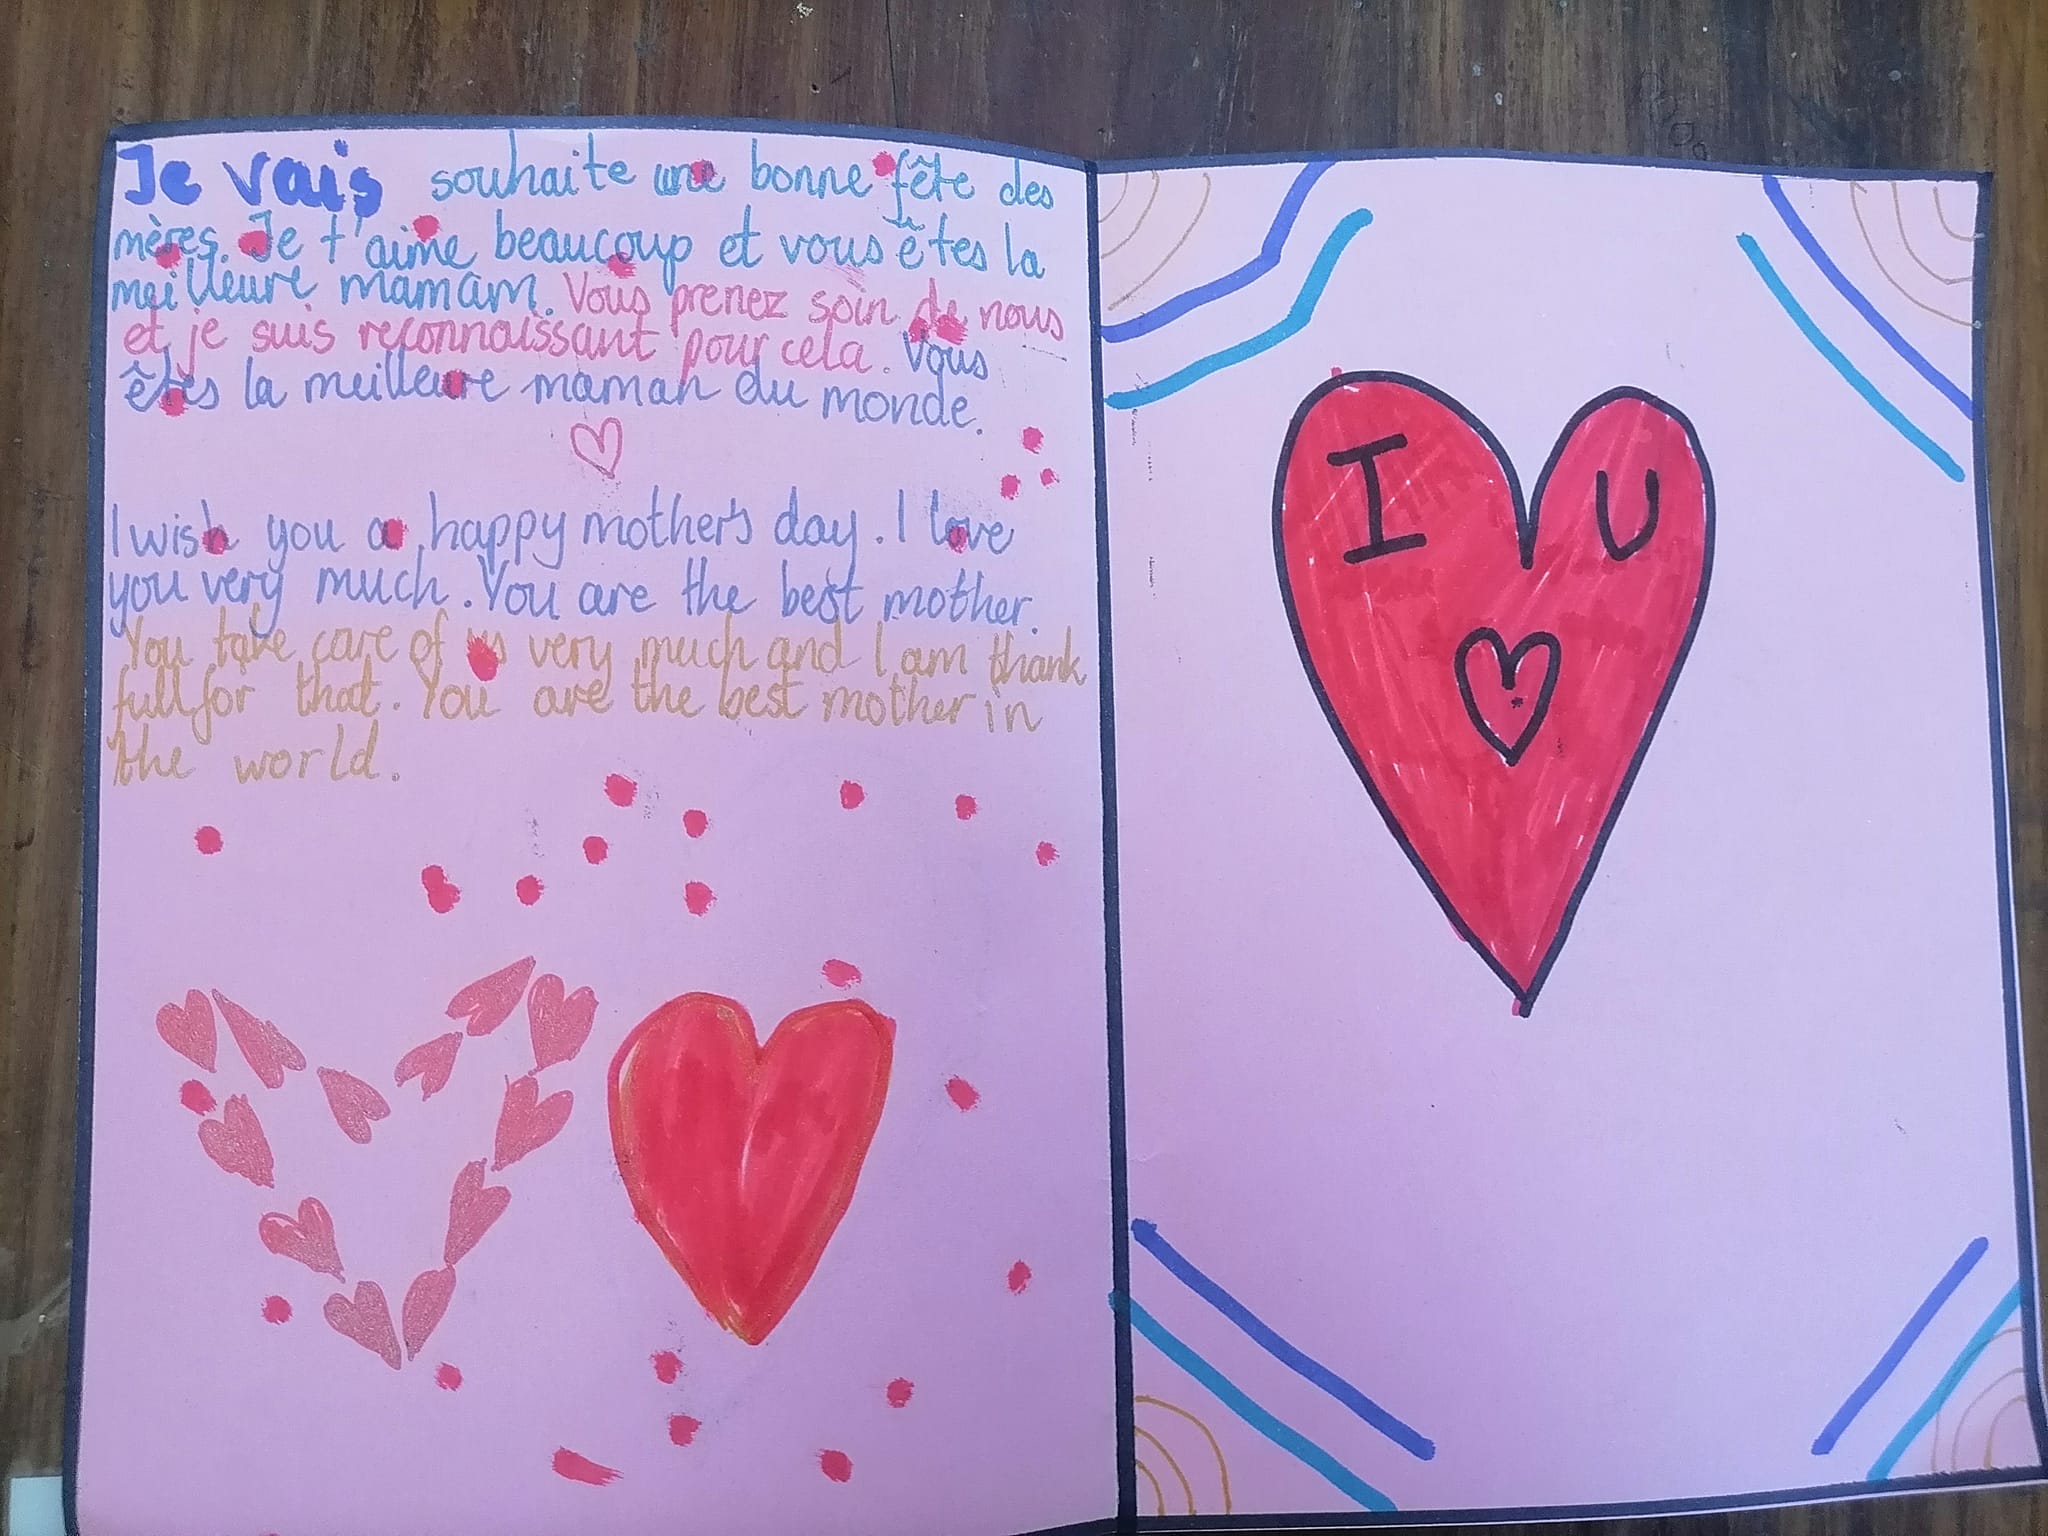 Je vais souhaite une bonne fête des
mères. Je t'aime beaucoup et vous êtes la
meilleure mamam. Vous prenez soin de nous
et je suis reconnaissant pour cela. Vous
êtes la meilleure maman du monde.
I wish you a happy mother's day. I love
you very much. You are the best mother.
You take care of us very much and I am thank
full for that. You are the best mother in
the world.
I U